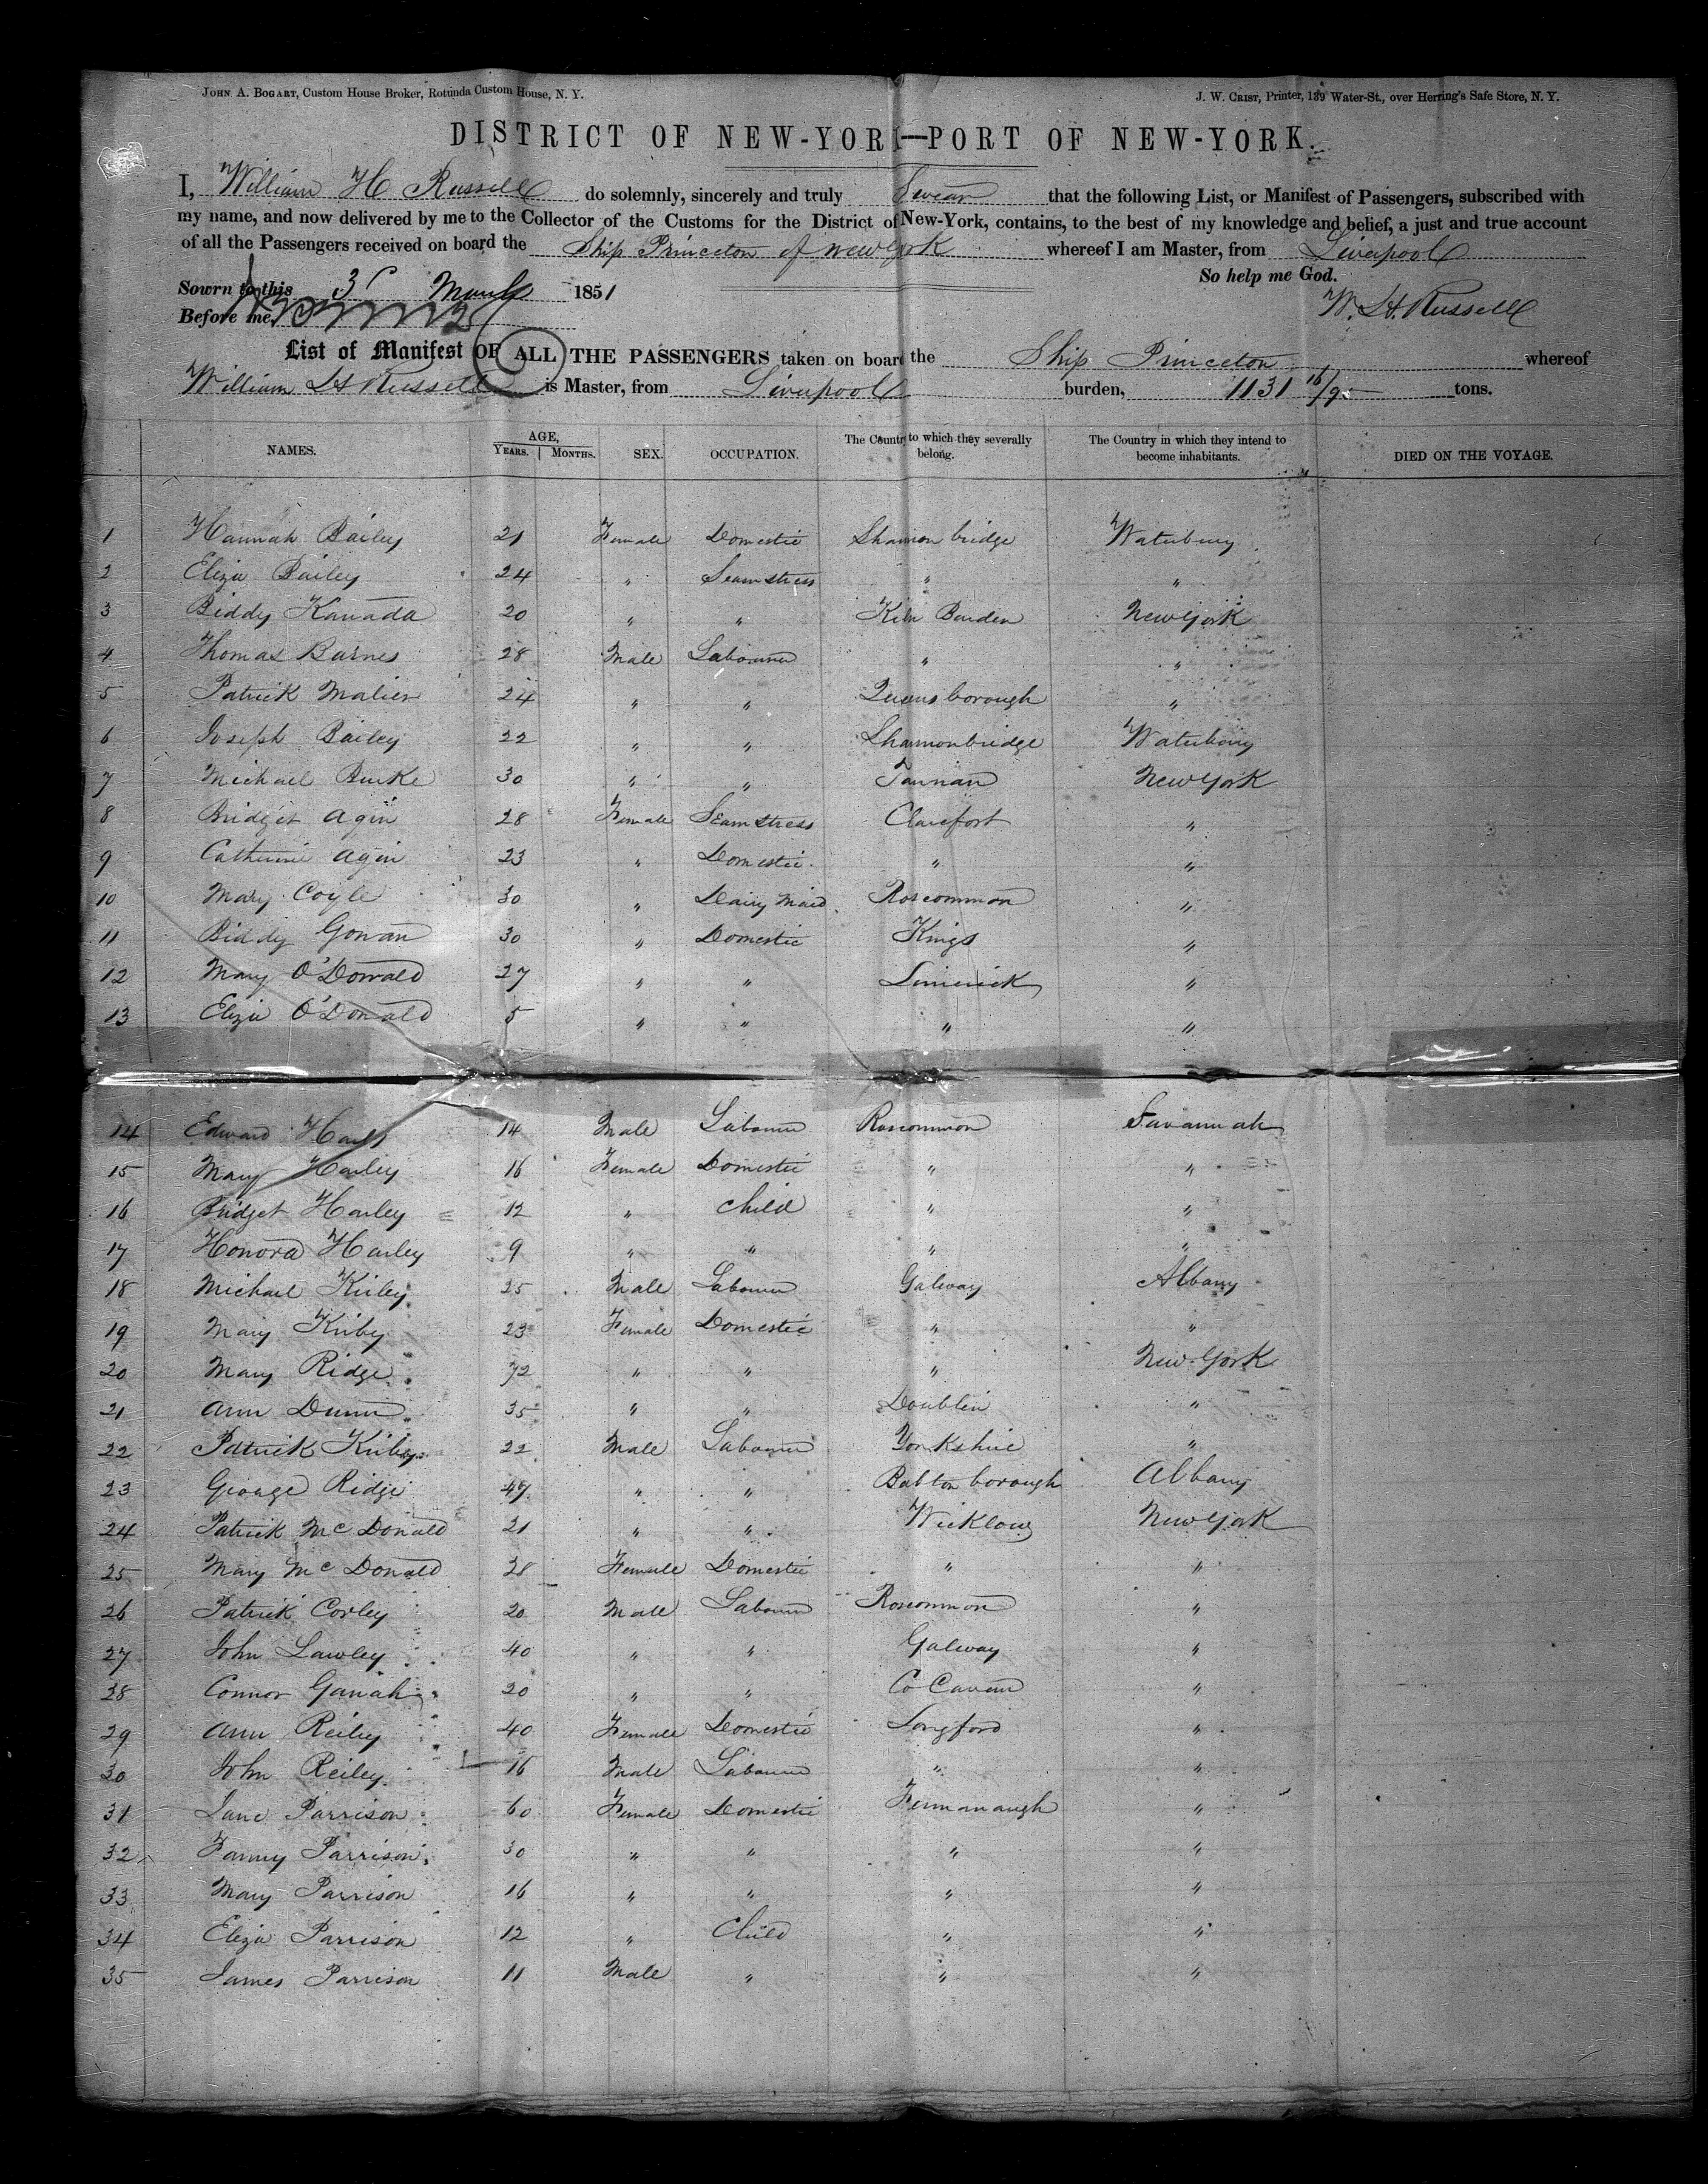 JOHN A. BOGART, Custom House Broker, Rotunda Custom House, N. Y.
J. W. CRIST, Printer, 139 Water-St., over Herring's Safe Store, N. Y.
DISTRICT OF NEW-YORK—PORT OF NEW-YORK.
I, William H Russell do solemnly, sincerely and truly Swear that the following List, or Manifest of Passengers, subscribed with
my name, and now delivered by me to the Collector of the Customs for the District of New-York, contains, to the best of my knowledge and belief, a just and true account
of all the Passengers received on board the Ship Princeton of New York whereof I am Master, from Liverpool
So help me God.
Sowrn to this 3 March 1851
W. H. Russell
Before me,
List of Manifest OF ALL THE PASSENGERS taken on board the Ship Princeton whereof
William H Russell is Master, from Liverpool burden, 1131 16/95 tons.
NAMES. AGE, YEARS. MONTHS. SEX. OCCUPATION. The Country to which they severally belong. The Country in which they intend to become inhabitants. DIED ON THE VOYAGE.
1 Hannah Bailey 21 Female Domestic Shannon bridge Waterbury
2 Eliza Bailey 24 " Seamstress " "
3 Biddy Kanada 20 " " Kiln New York
4 Thomas Barnes 28 Male Labourer " "
5 Patrick Malien 24 " " Queensborough "
6 Joseph Bailey 22 " " Shannonbridge Waterbury
7 Michael Burke 30 " " New York
8 Bridget Agin 28 Female Seamstress Clarefort "
9 Catherine Agin 23 " Domestic " "
10 Mary Coyle 30 " Dairy Maid Roscommon "
11 Biddy Gowan 30 " Domestic Kings "
12 Mary O'Donald 27 " " Limerick "
13 Eliza O'Donald 5 " " " "
14 Edward 14 Male Labourer Roscommon Savannah
15 Mary Harley 16 Female Domestic " "
16 Bridget Harley 12 " Child " "
17 Honora Harley 9 " " " "
18 Michael Kirby 25 Male Labourer Galway Albany
19 Mary Kirby 23 Female Domestic " "
20 Mary Ridge 72 " " " New York
21 Ann Dunn 35 " " Doublin "
22 Patrick Kirby 22 Male Labourer Yorkshire "
23 George Ridge 47 " " Babton borough Albany
24 Patrick McDonald 21 " " Wicklow New York
25 Mary McDonald 28 Female Domestic " "
26 Patrick Corley 20 Male Labourer Roscommon "
27 John Lawley 40 " " Galway "
28 Connor Ganah 20 " " Co Cavan "
29 Ann Reiley 40 Female Domestic Longford "
30 John Reiley 16 Male Labourer " "
31 Jane Parrison 60 Female Domestic Fermanaugh "
32 Fanny Parrison 30 " " " "
33 Mary Parrison 16 " " " "
34 Eliza Parrison 12 " Child " "
35 James Parrison 11 Male " " "